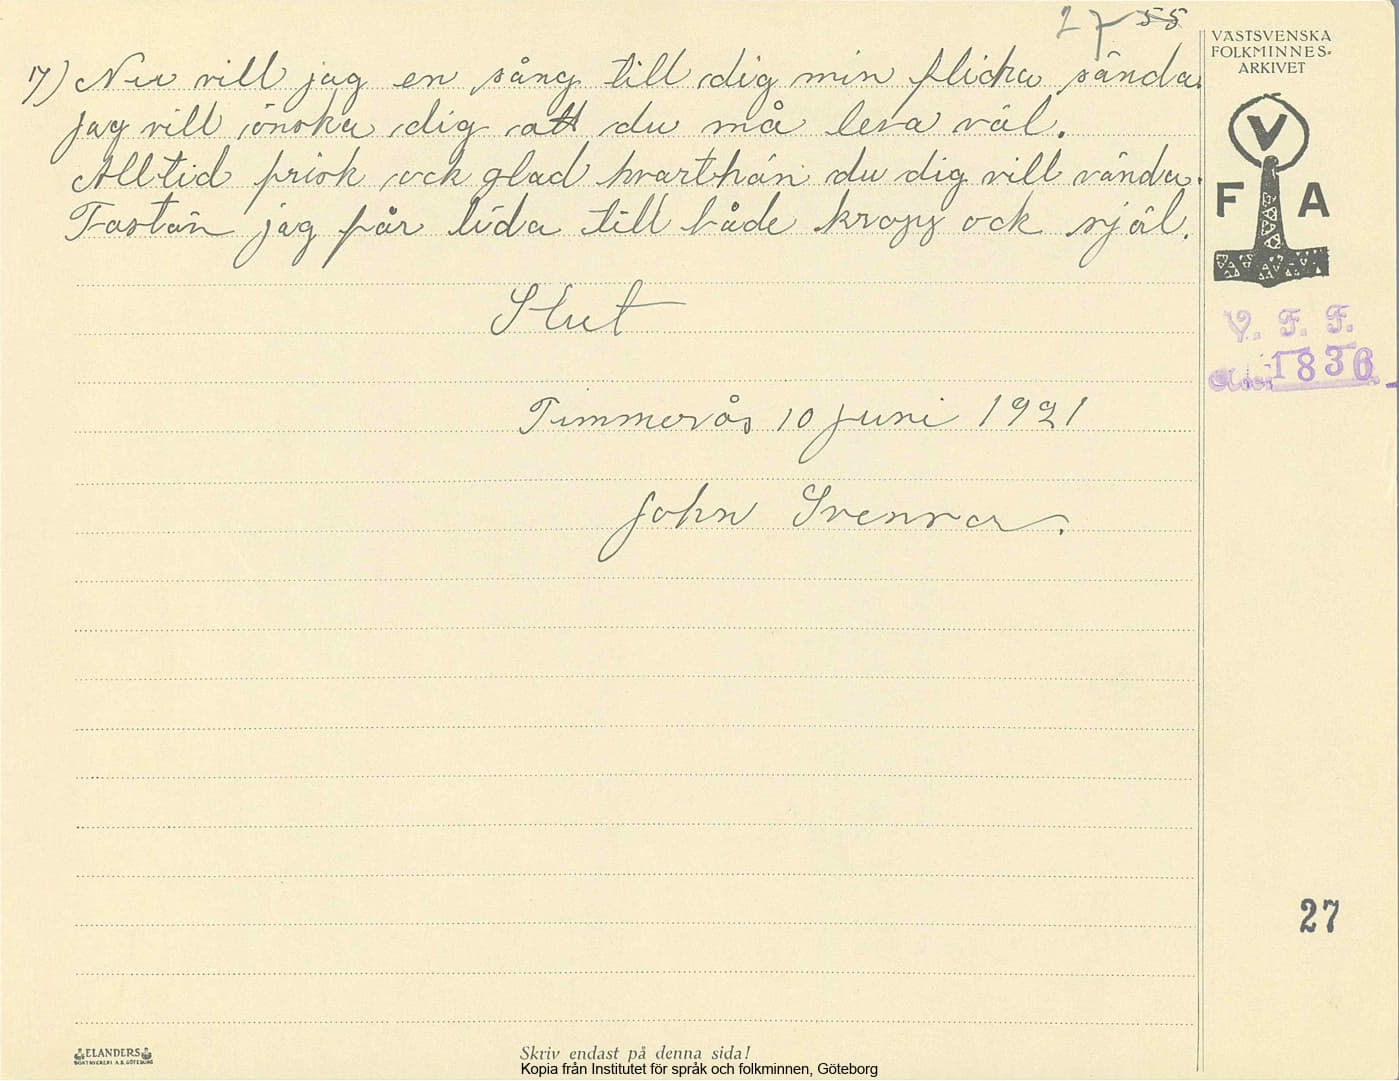 27 55
7) Nu vill jag en sång till dig min flicka sända.
jag vill önska dig att du må leva väl.
Alltid frisk ock glad hvarthän du dig vill vända.
Fastän jag får lida till både kropp ock själ.
Slut
Timmerås 10 juni 1921
John
VÄSTSVENSKA
FOLKMINNES-
ARKIVET
V
F A
V. F. F.
1836
27
ELANDERS
BOKTRYCKERI A.B. GÖTEBORG
Skriv endast på denna sida!
Kopia från Institutet för språk och folkminnen, Göteborg